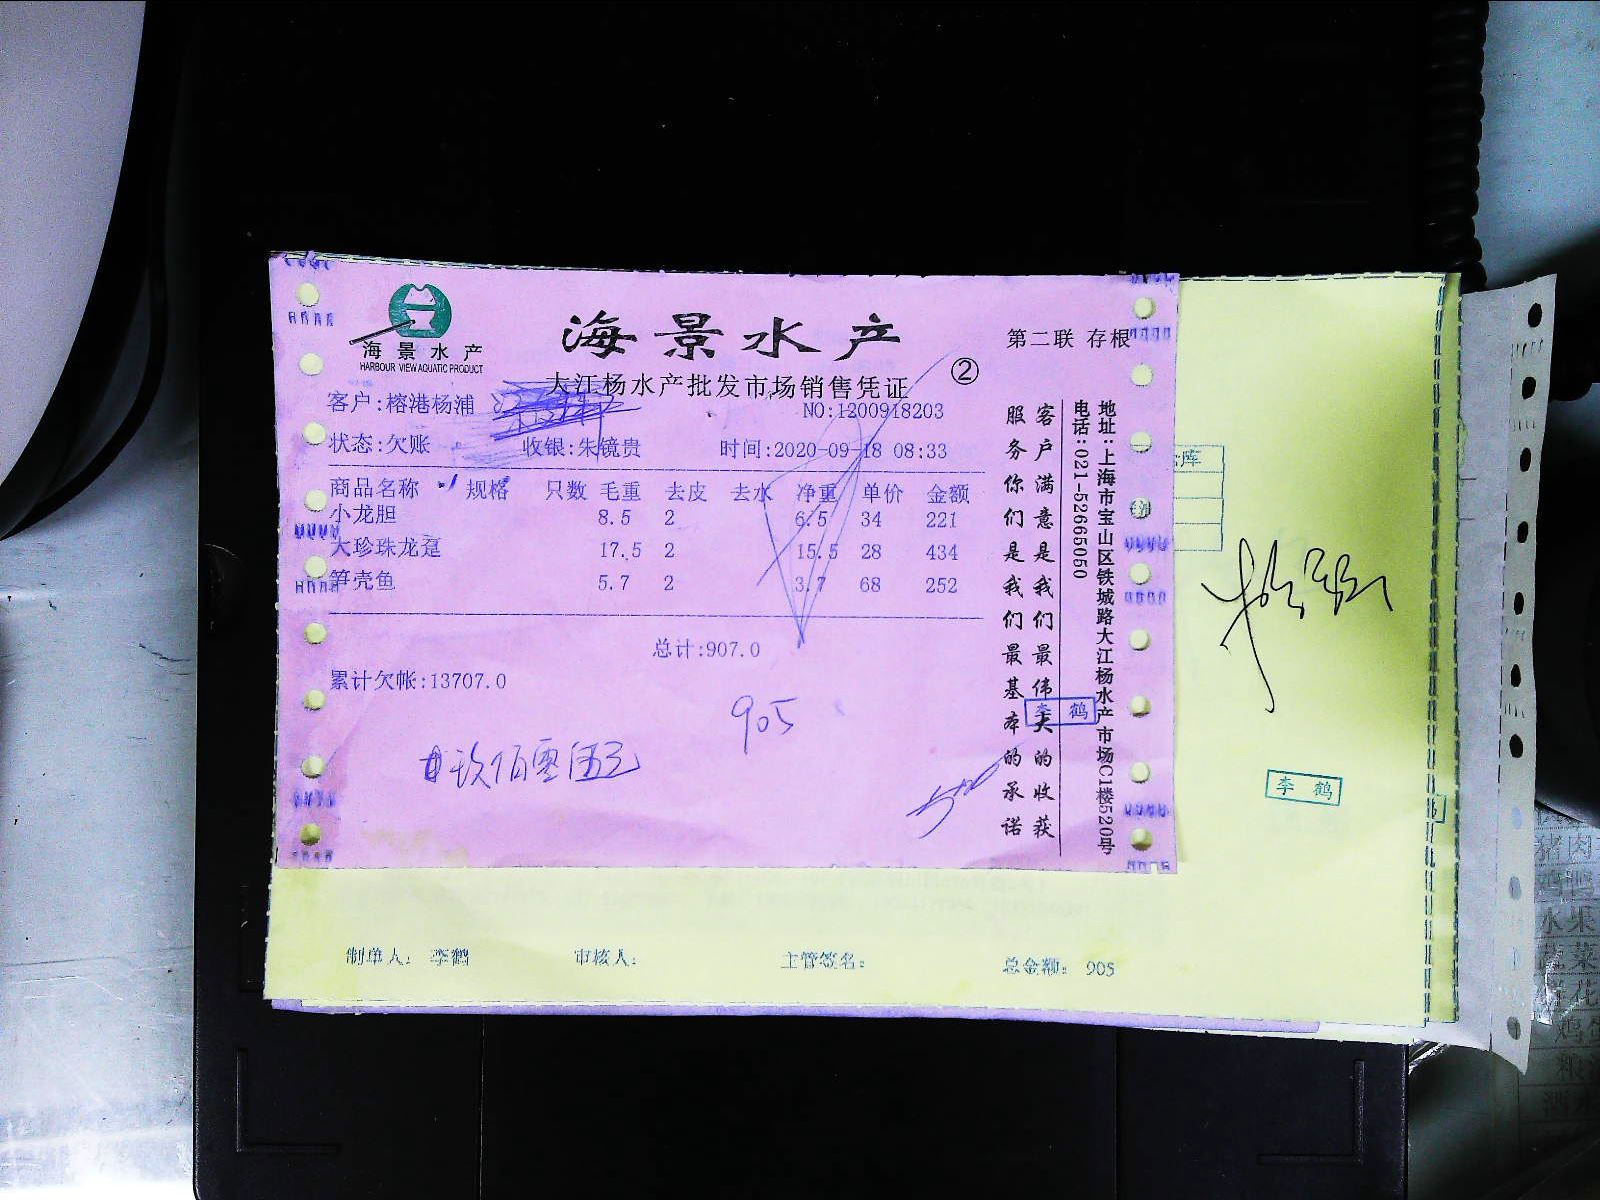 海景水产
HARBOUR VIEW AQUATIC PRODUCT
海景水产
第二联 存根
②
大江杨水产批发市场销售凭证
客户:榕港杨浦
NO:1200918203
状态:欠账 收银:朱镜贵 时间:2020-09-18 08:33
商品名称 规格 只数 毛重 去皮 去水 净重 单价 金额
小龙胆 8.5 2 6.5 34 221
大珍珠龙趸 17.5 2 15.5 28 434
笋壳鱼 5.7 2 3.7 68 252
总计:907.0
累计欠帐:13707.0
905
玖佰零伍元
客户满意是我们最伟大的收获
服务你们是我们最基本的承诺
地址:上海市宝山区铁城路大江杨水产市场C1楼520号
电话:021-52665050
李 鹤
库
李 鹤
制单人: 李鹤 审核人: 主管签名: 总金额: 905
猪肉
鸡鸭
水果
蔬菜